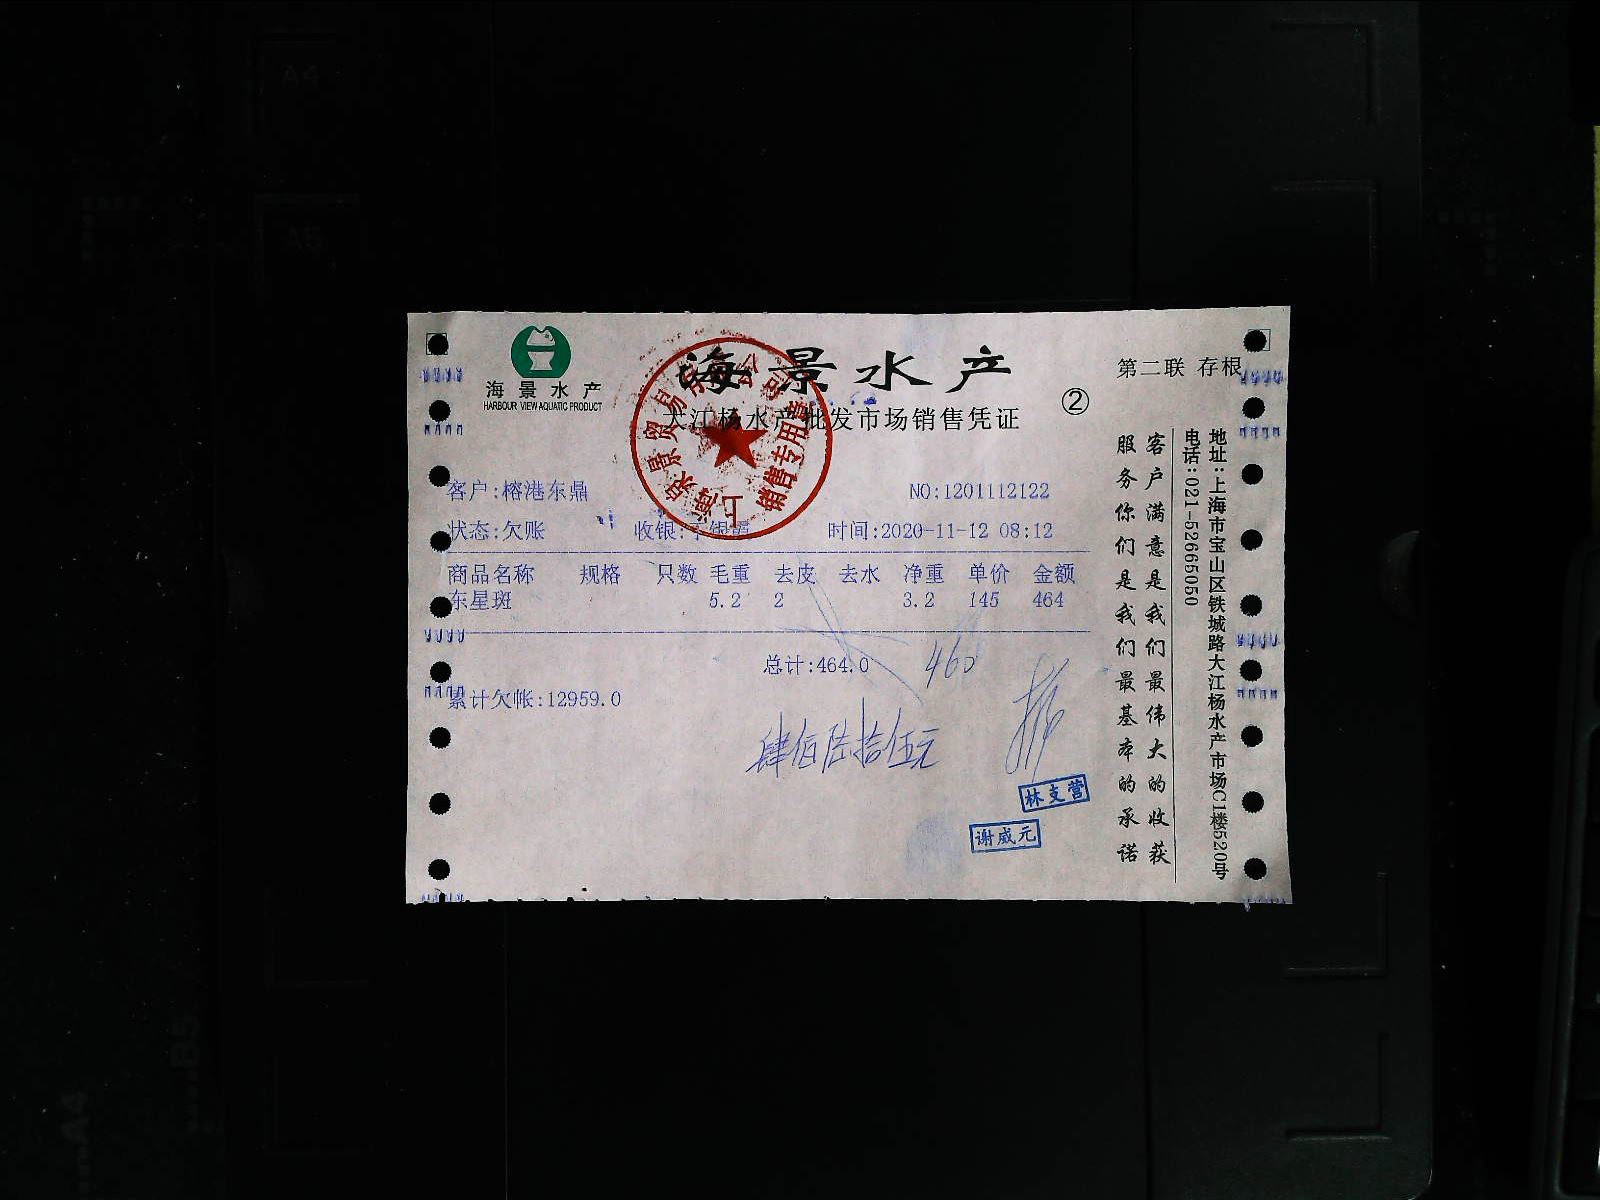 海景水产
HARBOUR VIEW AQUATIC PRODUCT
海景水产
大江杨水产批发市场销售凭证
②
第二联 存根
客户:榕港东鼎
NO:1201112122
状态:欠账 收银: 时间:2020-11-12 08:12
商品名称 规格 只数 毛重 去皮 去水 净重 单价 金额
东星斑 5.2 2 3.2 145 464
总计:464.0
460
累计欠帐:12959.0
肆佰陆拾伍元
林支营
谢威元
销售专用章
客户满意是我们最伟大的收获
服务你们是我们最基本的承诺
地址:上海市宝山区铁城路大江杨水产市场C1楼520号
电话:021-52665050
A4
A5
B5
A4